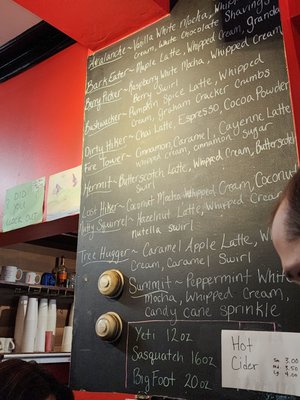 Avalanche - Vanilla White Mocha, Whipped
cream, White Chocolate Shavings
Bark Eater - Maple Latte, Whipped Cream, granola
Berry Picker - Raspberry White Mocha, Whipped Cream,
Berry Swirl
Bushwacker - Pumpkin Spice Latte, Whipped
Cream, Graham Cracker Crumbs
Dirty Hiker - Chai Latte, Espresso, Cocoa Powder
Fire Tower - Cinnamon, Caramel, Cayenne Latte
whipped cream, cinnamon sugar
Hermit - Butterscotch Latte, Whipped Cream, Butterscotch
Swirl
Lost Hiker - Coconut Mocha Whipped Cream, Coconut
Nutty Squirrel - Hazelnut Latte, Whipped Cream
Nutella swirl
Tree Hugger - Caramel Apple Latte, W
Cream, Caramel Swirl
Summit - Peppermint White
Mocha, Whipped Cream,
candy cane sprinkle
Yeti 12oz
Sasquatch 16oz
BigFoot 20oz
Hot
Cider
Sm 3.00
Md 3.50
Lg 4.00
DID
YOU
CLOCK OUT